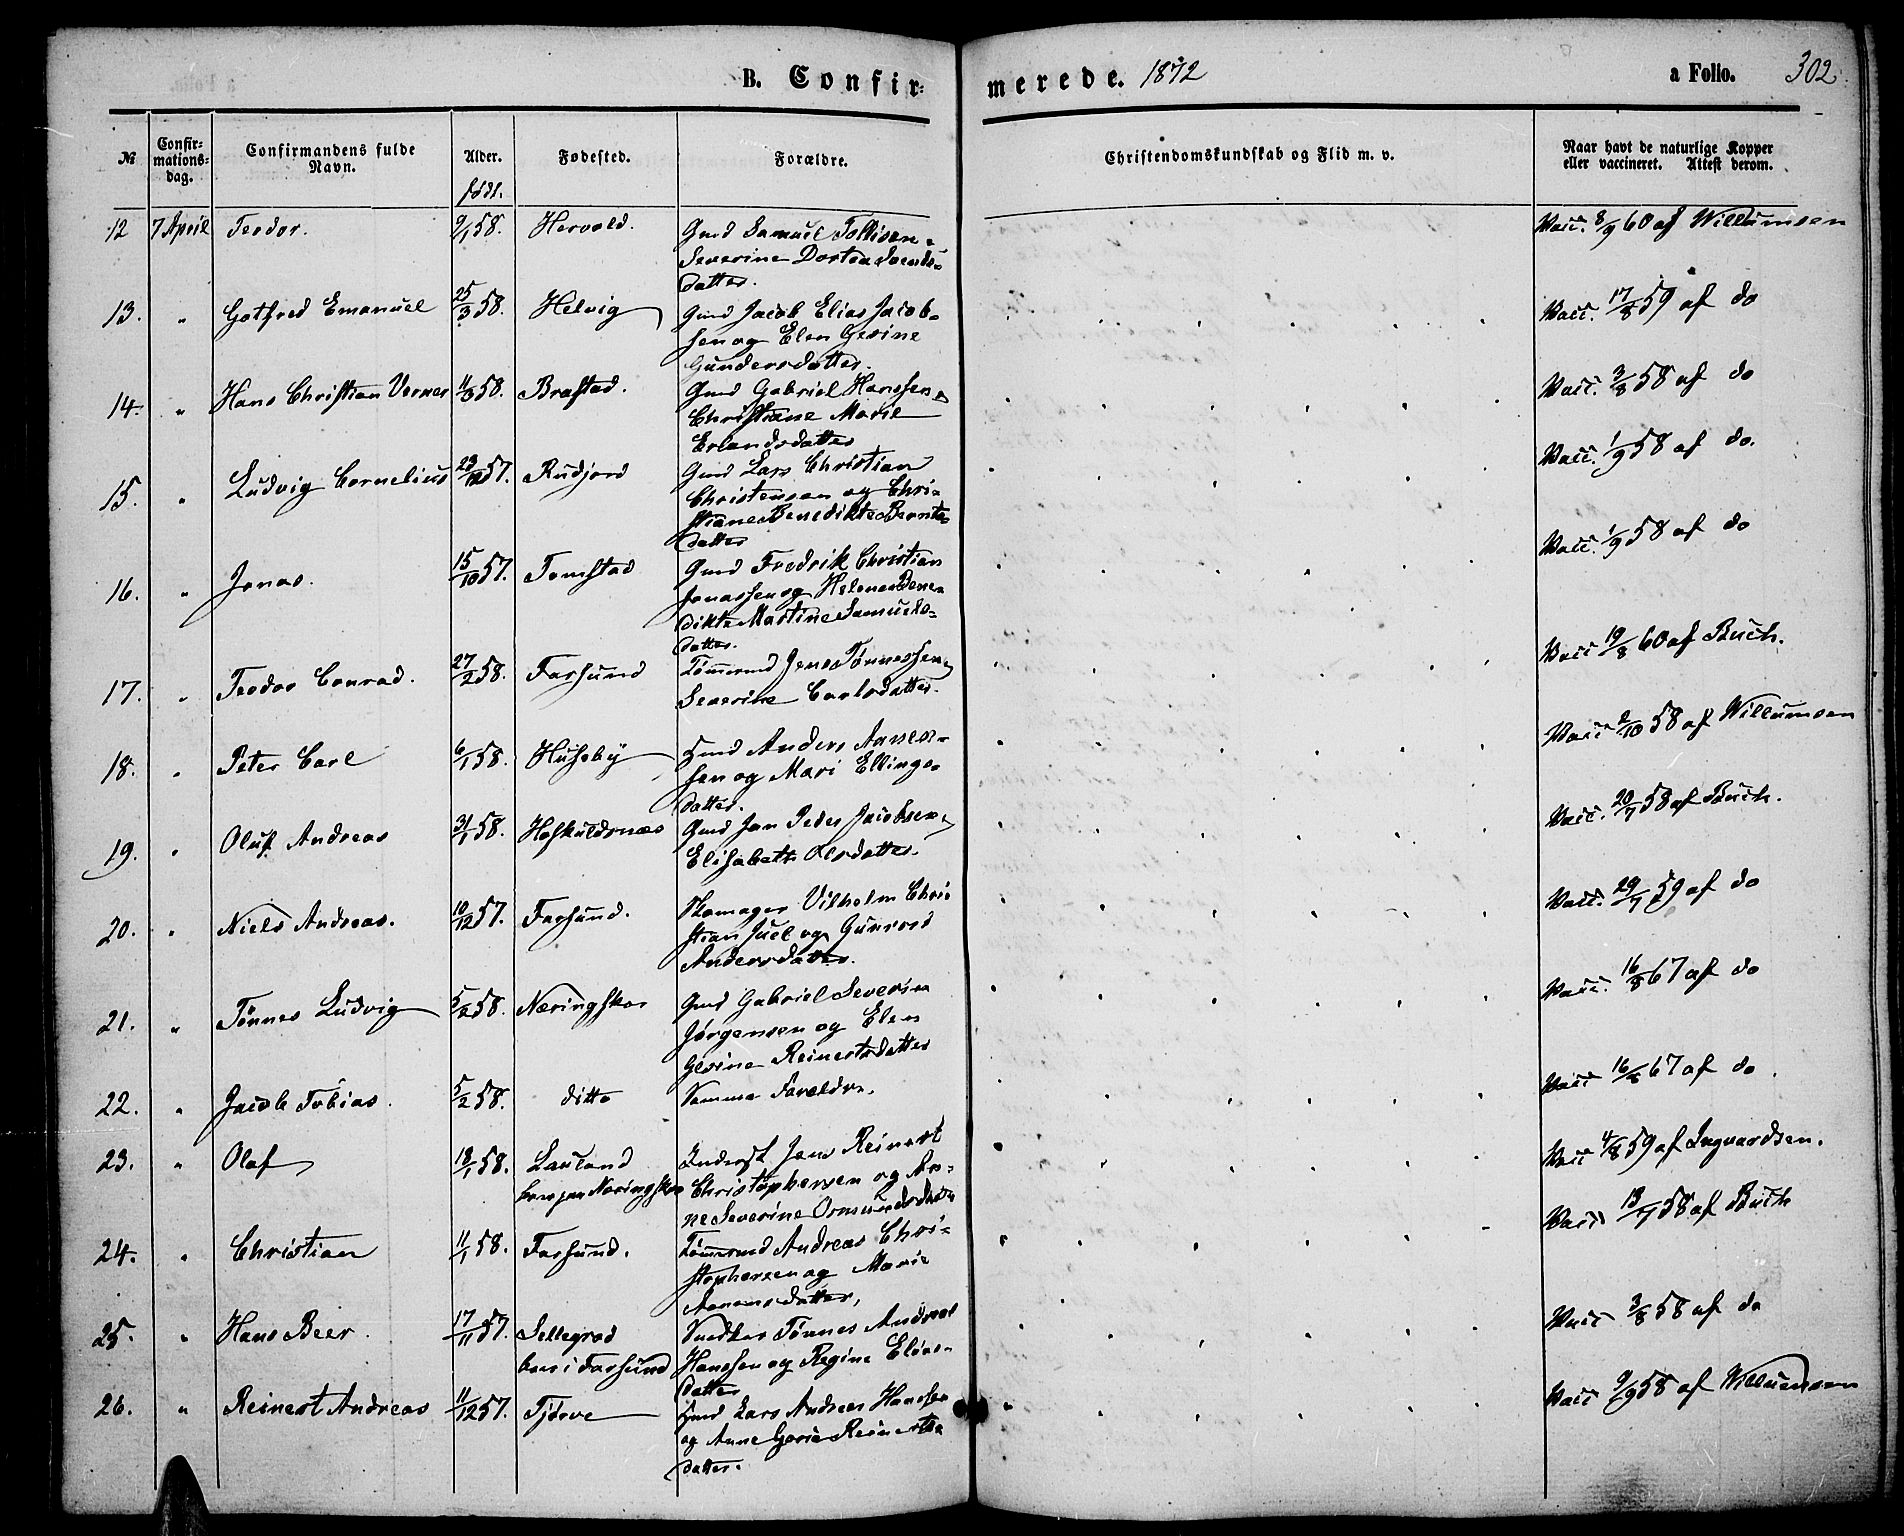 B. Confir-
merede. 1872
a Folio. 302
№
Confir-
mations-
dag.
Confirmandens fulde
Navn.
Alder.
født.
Fødested.
Forældre.
Christendomskundskab og Flid m. v.
Naar havt de naturlige Kopper
eller vaccineret. Attest derom.
12 7 April Teodor. 9/1 58. Hervold. Gmd Samuel Tollisen
Severine Dortea Svends-
datter.
Vacc. 8/9 60 af Willumsen
13. " Gotfred Emanuel 25/3 58. Helvig Gmd Jacob Elias Jacob-
sen og Elen Gesine
Gundersdatter.
Vacc. 17/8 59 af do
14. " Hans Christian Verner 58. Brastad. Gmd Gabriel Hanssen
Christiane Marie
Erlandsdatter
Vacc. 3/8 58 af do
15. " Ludvig Cornelius 57. Rudjord Gmd Lars Christian
Christensen og Chri-
stiane Benedikte Bernts-
datter
Vacc. 1/9 58 af do.
16. " Jonas. 15/10 57. Tomstad Gmd Fredrik Christian
Jonassen og Helene Bene-
dikte Martine Samuels-
datter.
Vacc. 1/9 58 af do
17. " Teodor Conrad. 27/2 58. Farsund Tømmermd Jens Tønnessen
Severine Carlsdatter.
Vacc 19/8 60 af Buch.
18. " Peter Carl 6/1 58. Huseby Hmd Anders Aanen-
sen og Mari Ellings-
datter.
Vacc 2/10 58 af Willumsen
19. " Oluf Andreas 31/1 58. Hafkuldsnæs Gmd Jan Peder Jacobsen
Elisabeth Olsdatter.
Vacc. 20/7 58 af Buch.
20. " Niels Andreas. 10/12 57. Farsund. Skomager Vilhelm Chri-
stian Juel og Gunvord
Andersdatter.
Vacc. 29/7 59 af do
21. " Tønnes Ludvig 5/2 58. Næringskar Gmd Gabriel Severin
Jørgensen og Elen
Gesine Reinertsdatter
Vacc. 16/8 67 af do
22. " Jacob Tobias. 5/2 58. ditto Samme Forældre.
Vacc 16/8 67 af do.
23. " Olaf 18/1 58. Lauland Inderst Jens Reinert
Næringskar Christophersen og An-
ne Severine Osmundsdatter
Vacc 4/8 59 af Ingvardsen.
24. " Christian 11/1 58. Farsund. Tømmermd Andreas Chri-
stophersen og Marie
Aanensdatter.
Vacc 13/7 58 af Buch
25. " Hans Beer. 17/11 57. Sellegrod Snedker Tønnes Andreas
boer i Farsund Hanssen og Regine Elias-
datter
Vacc 3/8 58 af do
26. " Reinert Andreas 11/12 57. Tjørve Hmd Lars Andreas Hanssen
og Anne Gurie Reinerts-
datter.
Vacc 9/9 58 af Willumsen